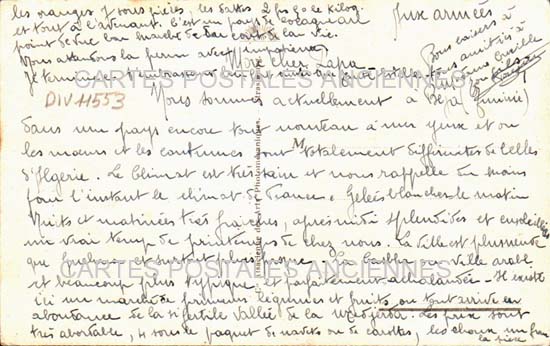 les oranges 7 sous pièces, les dattes 2 frs 50 le kilog
et tout à l'avenant. C'est un pays de cocagne au
point de vue bon marché du coût de la vie.
Nous attendons la prime avec impatience.
Je termine en t'embrassant
aux armées
Bons baisers à
Mon cher Papa
CARTES POSTALES ANCIENNES
DIV 11553
Nous sommes actuellement à Béja (Tunisie)
dans un pays encore tout nouveau à mes yeux et où
les mœurs et les coutumes sont totalement différentes de celles
d'Algérie. Le climat est très sain et nous rappelle du moins
pour l'instant le climat de France. Gelées blanches le matin
Nuits et matinées très fraîches, après midi splendides et ensoleillées
un vrai temps de printemps de chez nous. La ville est plus
que et surtout plus propre. La Casbah ville arabe
CARTES POSTALES ANCIENNES
est beaucoup plus typique et parfaitement achalandée. Il existe
ici un marché de primeurs légumes et fruits où tout arrive en
abondance de la si fertile vallée de la Medjerda. Les prix sont
très abordables, 4 sous le paquet de navets ou de carottes, les choux un franc
la pièce